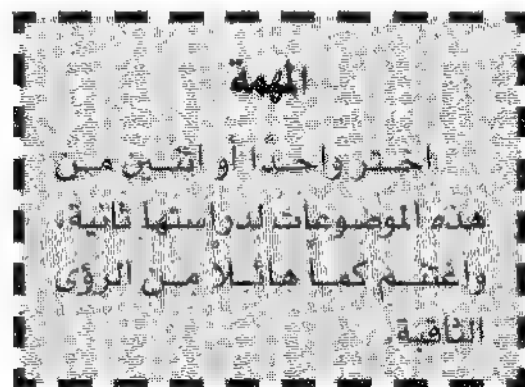 المهمة
اختر واحدًا أو اثنين من
هذه الموضوعات لدراستها ثانية،
واغتنم كمًا هائلاً من الرؤى
الثاقبة.